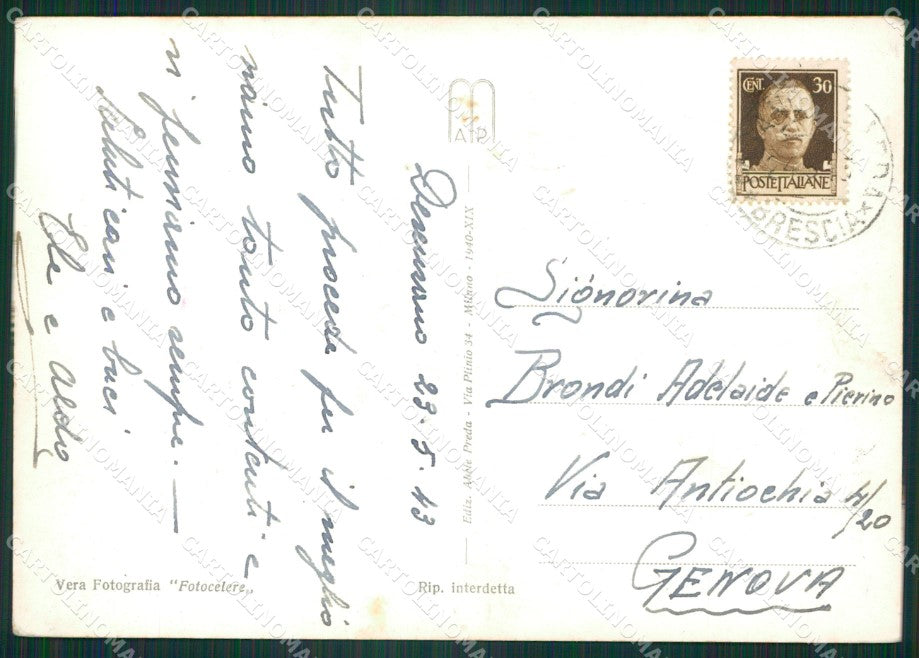 Desenzano 23.5.43
Tutto procede per il meglio
siamo tanto contenti e
vi pensiamo sempre. —
Saluti cari e baci
Ele e Aldo
AIP
Ediz. Adele Preda - Via Plinio 34 - Milano - 1940-XIX
Vera Fotografia "Fotocelere"
Rip. interdetta
CENT. 30
POSTE ITALIANE
BRESCIA
Signorina
Brondi Adelaide e Pierino
Via Antiochia 4/20
GENOVA
CARTOLINOMANIA